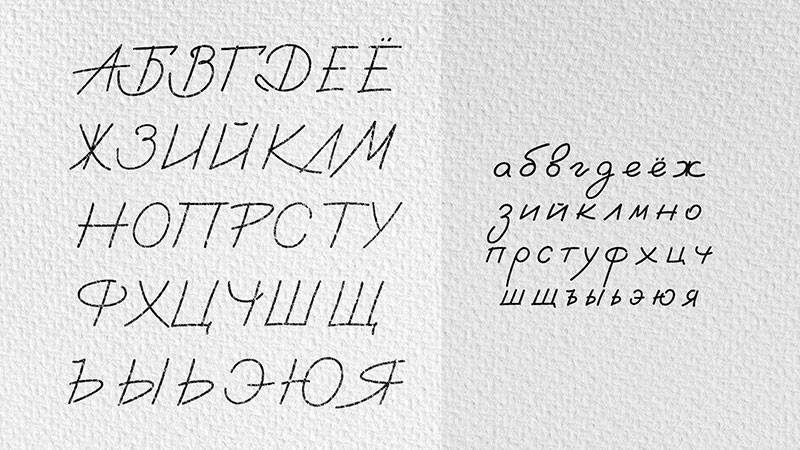 АБВГДЕЁ
ЖЗИЙКЛМ
НОПРСТУ
ФХЦЧШЩ
ЪЫЬЭЮЯ
абвгдеёж
зийклмно
прстуфхцч
шщъыьэюя